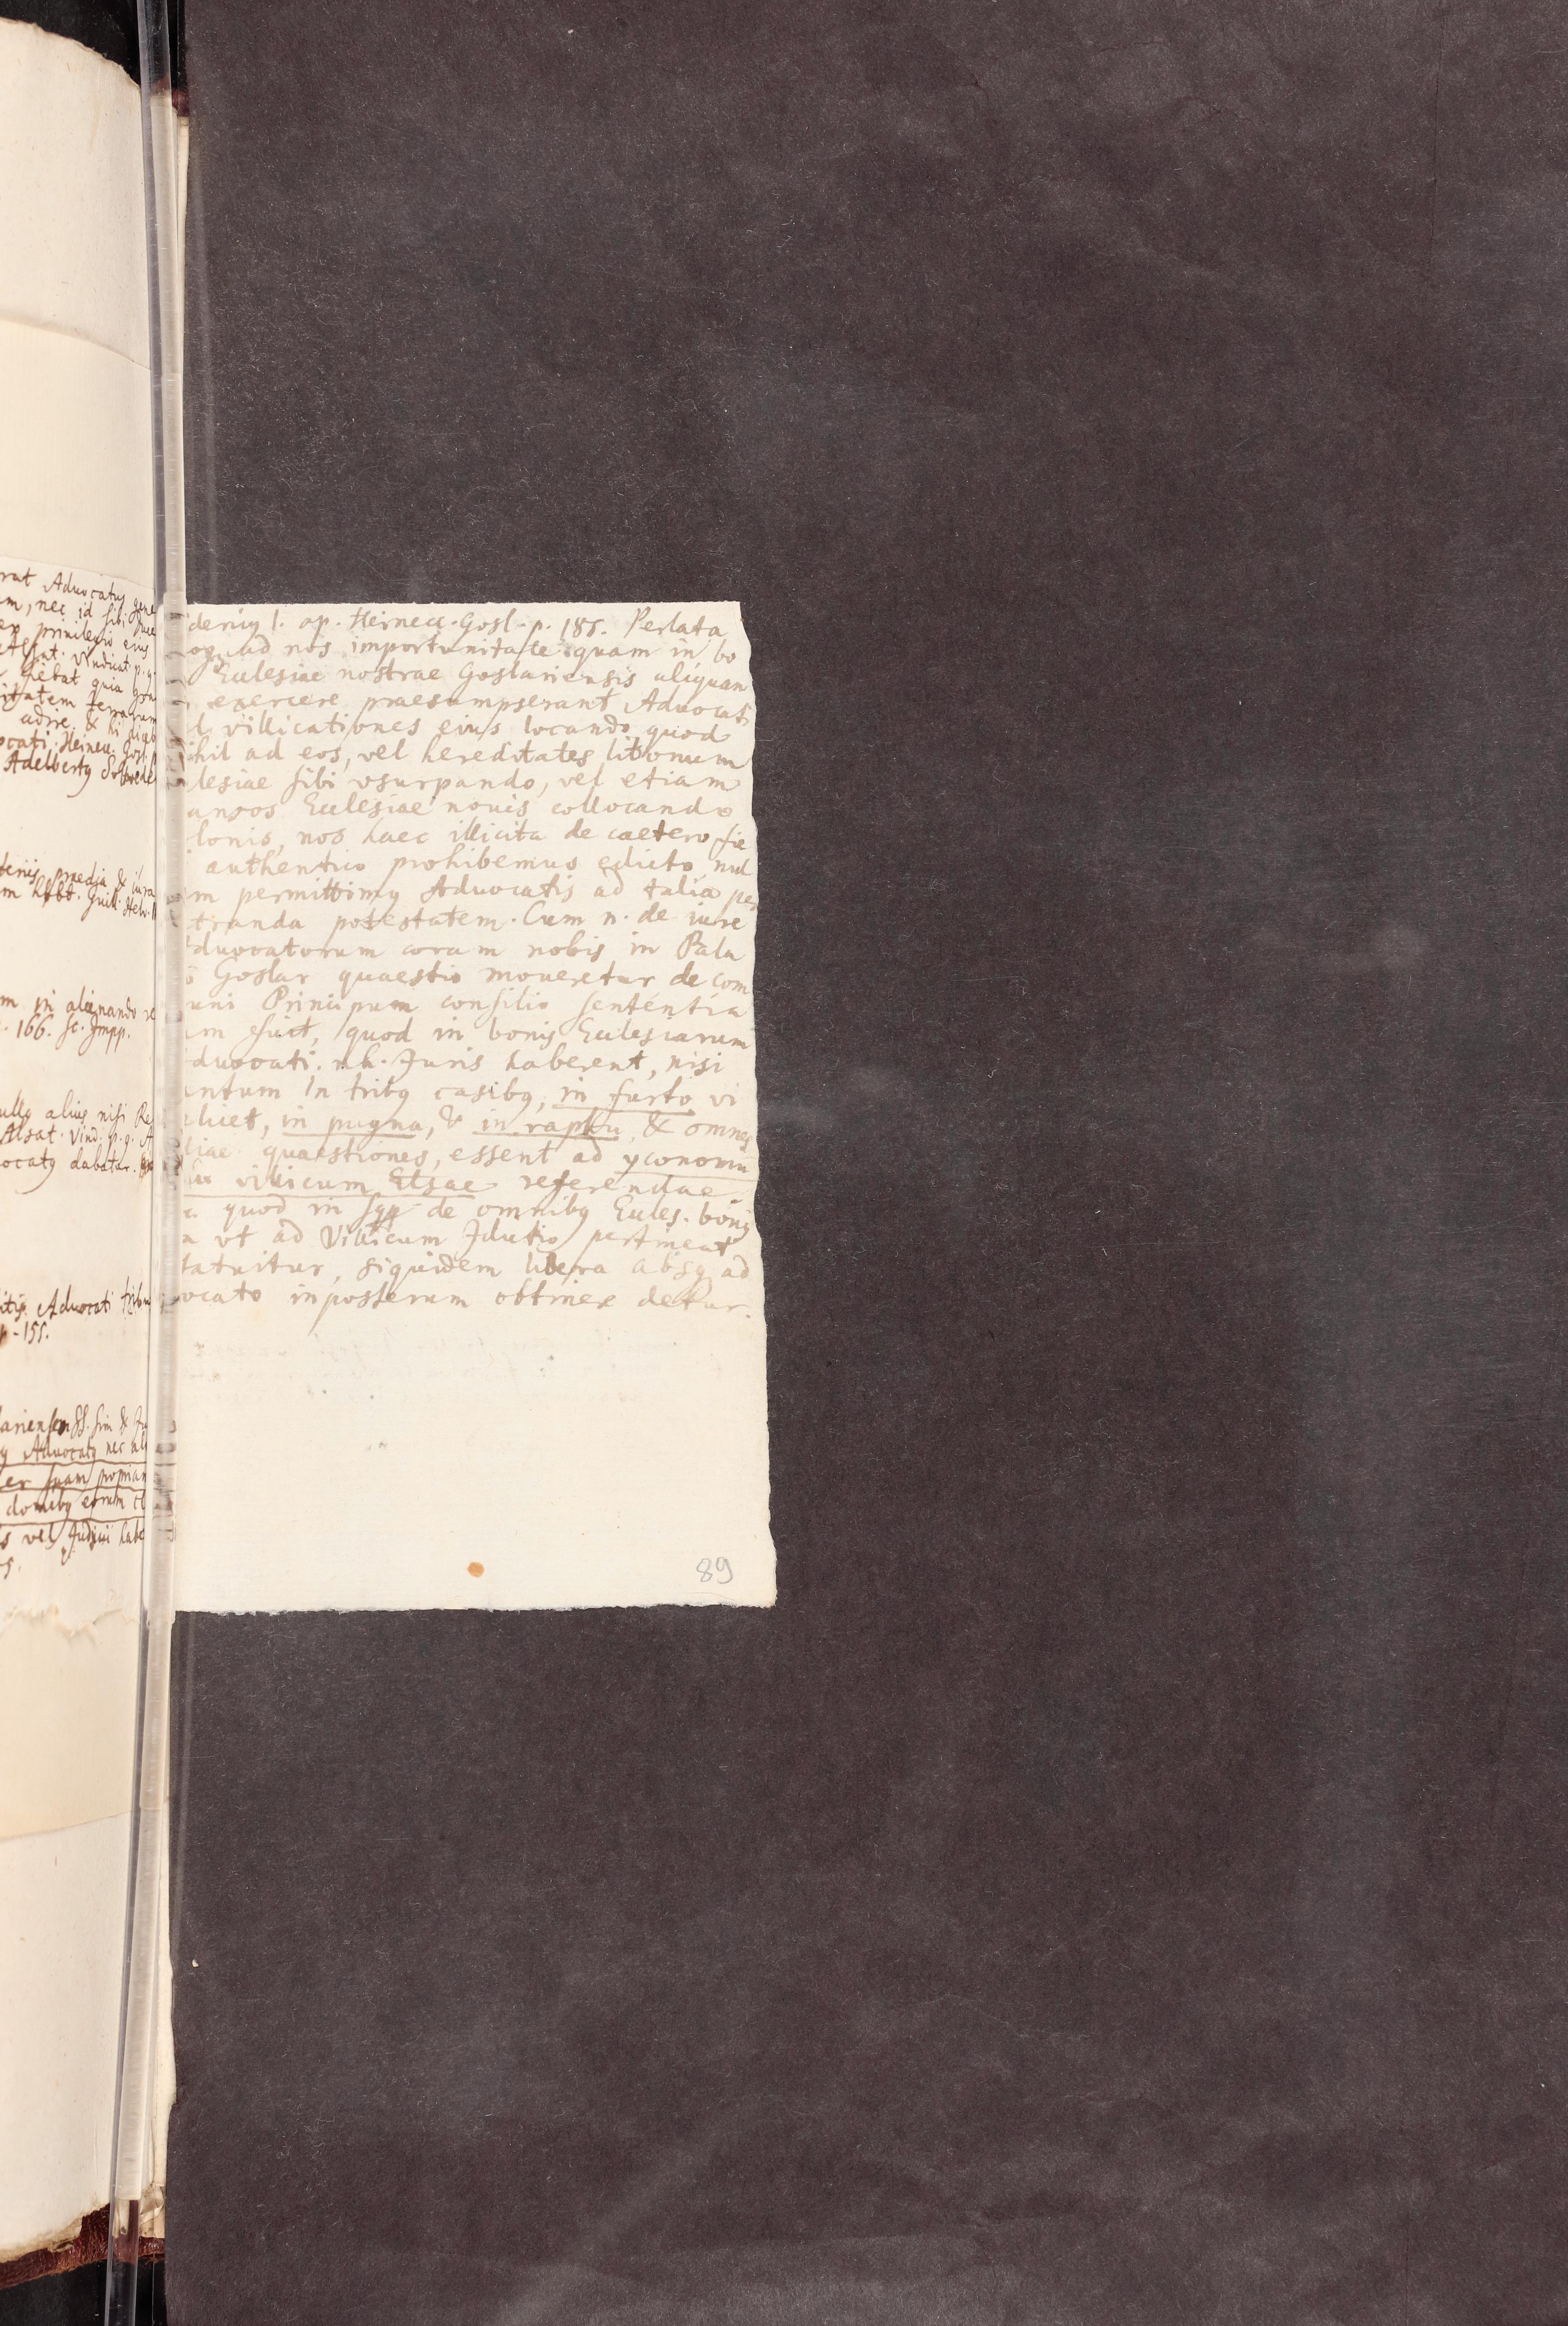 rat Advocatus gene
m, nec id sibi
ex privilegio eius
Alsat. Vindicat. p. 9.
fiebat quia
itatem terrarum
adire. & hi
ocati. Heinecc. Gosl
Adelbertq
praedia & iura
m hbt. Guil.
m in alienando re
. 166. sc. Impp.
ullq alius nisi Re
Alsat. Vind. p. 9. A
ocatq dabatur.
Advocati tribu
p - 155.
lariensem SS. Sim & Ju
q Advocatq nec al
er suam propriam
domibq eorum
s vel Judicii habe
s.
dericq I. ap. Heinecc. Gosl. p. 185. Perlata
oq; ad nos importunitate quam in bo
Ecclesiae nostrae Goslariensis aliquam
exercere praesumpserant Advocati
l villicationes eius locando, quod
ihil ad eos, vel hereditates litonum
lesiae sibi vsurpando, vel etiam
ansos Ecclesiae nouis collocando
lonis, nos haec illicita de caetero fie
authentico prohibemus edicto, nul
m permittimq Advocatis ad talia per
tranda potestatem. Cum n. de iure
dvocatorum coram nobis in Pala
o Goslar quaestio moueretur de com
uni Principum consilio sententia
um fuit, quod in bonis Ecclesiarum
dvocati nh. Juris haberent, nisi
antum In tribq casibq, in furto vi
elicet, in pugna, & in raptu, & omnes
liae quaestiones, essent ad yconomu
siu villicum Elsae referendae.
a quod in sqq de omnibq Eccles. bonis
n vt ad Villicum Jdutio pertineat
tatuitur, siquidem libera absq ad
vocato inposterum obtinere detur.
89